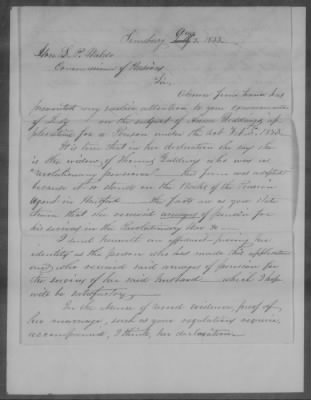 Simsbury 1853
Hon. L. P. Waldo
Commissioner of Pensions
Sir,
has
presented my earlier attention to your communication
of July on the subject of Giddings ap-
plication for a Pension under the act Feb 3d 1853.
It is true that in her declaration she says she
is the widow of Thomas Giddings who was a
"revolutionary pensioner" this form was adopted
because it so stands on the Books of the Pension
Agent in Hartford the facts are as you state
them that she received arrearages of pension for
his services in the Revolutionary War &c
I send herewith an affidavit proving her
identity as the person who has made this application
and who received said arrearages of pension for
the services of her said husband which I hope
will be satisfactory
In the absence of record evidence, proof of
her marriage, such as your regulations require,
accompanied, I think, her declaration